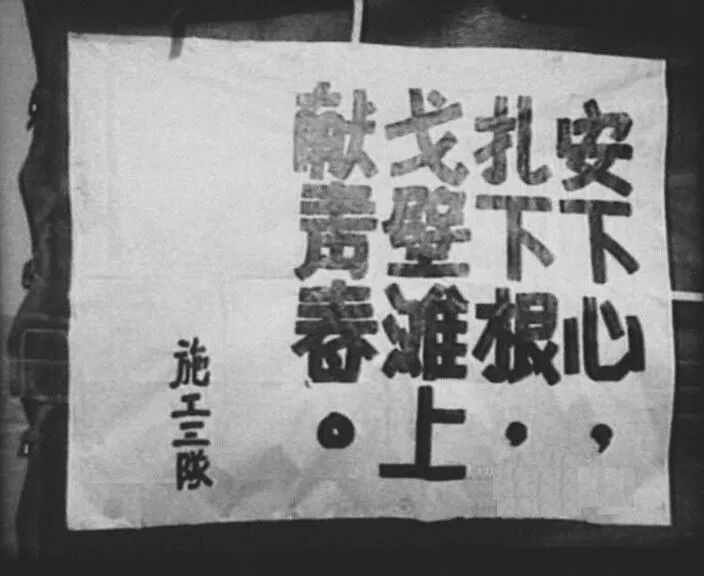 安下心,
扎下根,
戈壁滩上
献青春。
施工三队